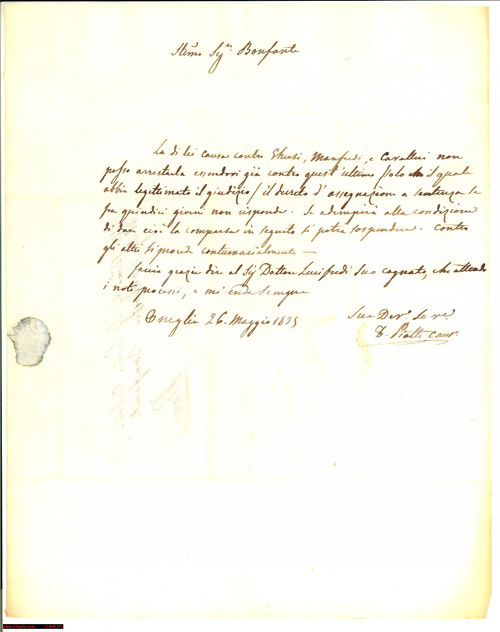 Ill.mo Sig.re Bonfante
La di lei causa contro Ghersi, Manfredi, e Cavalleri non
posso arrestarla essendovi già contro quest'ultimo / solo che il quale
abbia legittimato il giudizio / il decreto d'assegnazione a sentenza se
fra quindici giorni non risponde. Se adempirà alla condizione
di dare così la comparsa in seguito si potrà sospendere. Contro
gli altri si procede contumacialmente —
faccia grazia dire al Sig Dottore Lucifredi suo cognato, che attendo
i noti processi, e mi creda sempre
Oneglia 26. Maggio 1835
Suo Dev.o Servo
Piatti caus.